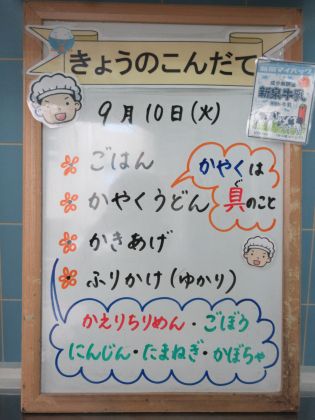 きょうのこんだて
9月10日(火)
ごはん
かやくうどん
かきあげ
ふりかけ(ゆかり)
かやくは
具のこと
かえりちりめん・ごぼう
にんじん・たまねぎ・かぼちゃ